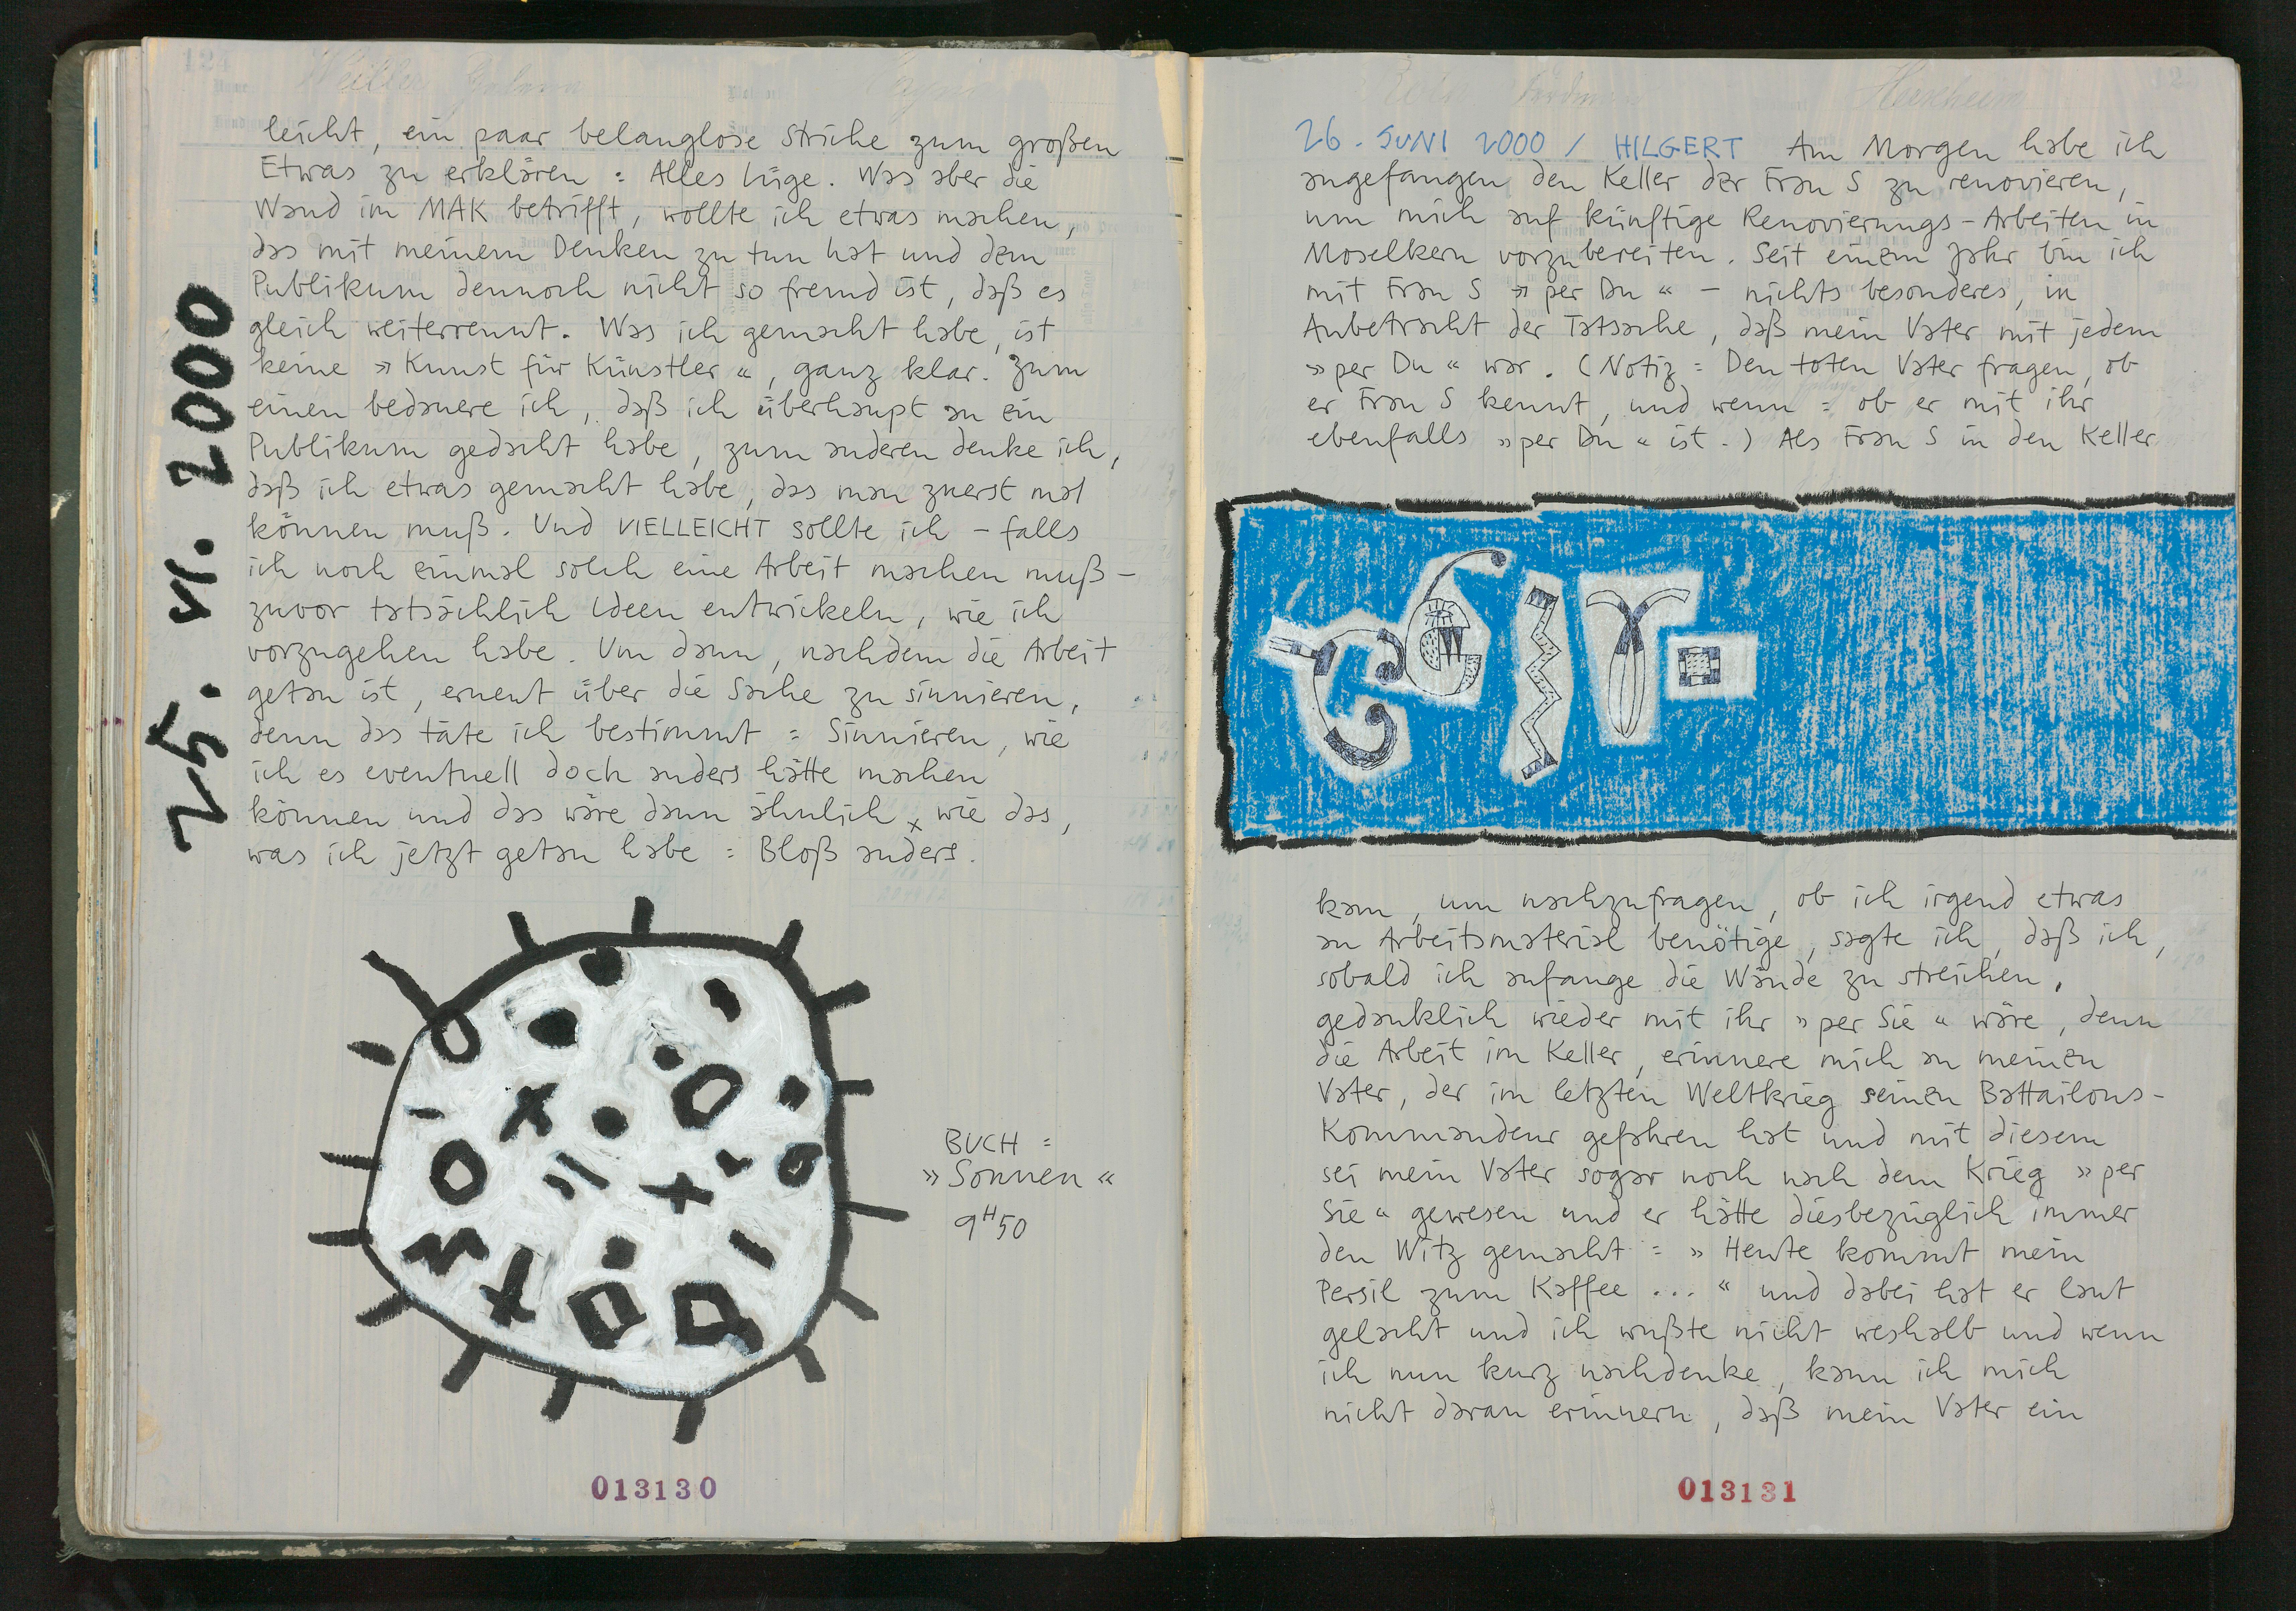 leicht, ein paar belanglose Striche zum großen
Etwas zu erklären = Alles Lüge. Was aber die
Wand im MAK betrifft, wollte ich etwas machen,
das mit meinem Denken zu tun hat und dem
Publikum dennoch nicht so fremd ist, daß es
gleich weiterrennt. Was ich gemacht habe, ist
keine »Kunst für Künstler«, ganz klar. Zum
einen bedauere ich, daß ich überhaupt an ein
Publikum gedacht habe, zum anderen denke ich,
daß ich etwas gemacht habe, das man zuerst mal
können muß. Und VIELLEICHT sollte ich – falls
ich noch einmal solch eine Arbeit machen muß –
zuvor tatsächlich Ideen entwickeln, wie ich
vorzugehen habe. Um dann, nachdem die Arbeit
getan ist, erneut über die Sache zu sinnieren,
denn das täte ich bestimmt = Sinnieren, wie
ich es eventuell doch anders hätte machen
können und das wäre dann ähnlich x wie das,
was ich jetzt getan habe = Bloß anders.
25. VI. 2000
BUCH =
»Sonnen«
9H50
013130
26. JUNI 2000 / HILGERT Am Morgen habe ich
angefangen den Keller der Frau S zu renovieren,
um mich auf künftige Renovierungs-Arbeiten in
Moselkern vorzubereiten. Seit einem Jahr bin ich
mit Frau S »per Du« – nichts besonderes, in
Anbetracht der Tatsache, daß mein Vater mit jedem
»per Du« war. (Notiz = Den toten Vater fragen, ob
er Frau S kennt, und wenn = ob er mit ihr
ebenfalls »per Du« ist.) Als Frau S in den Keller
kam, um nachzufragen, ob ich irgend etwas
an Arbeitsmaterial benötige, sagte ich, daß ich,
sobald ich anfange die Wände zu streichen,
gedanklich wieder mit ihr »per Sie« wäre, denn
die Arbeit im Keller, erinnere mich an meinen
Vater, der im letzten Weltkrieg seinen Battailons-
Kommandeur gefahren hat und mit diesem
sei mein Vater sogar noch nach dem Krieg »per
Sie« gewesen und er hätte diesbezüglich immer
den Witz gemacht = »Heute kommt mein
Persil zum Kaffee ...« und dabei hat er laut
gelacht und ich wußte nicht weshalb und wenn
ich nun kurz nachdenke, kann ich mich
nicht daran erinnern, daß mein Vater ein
013131